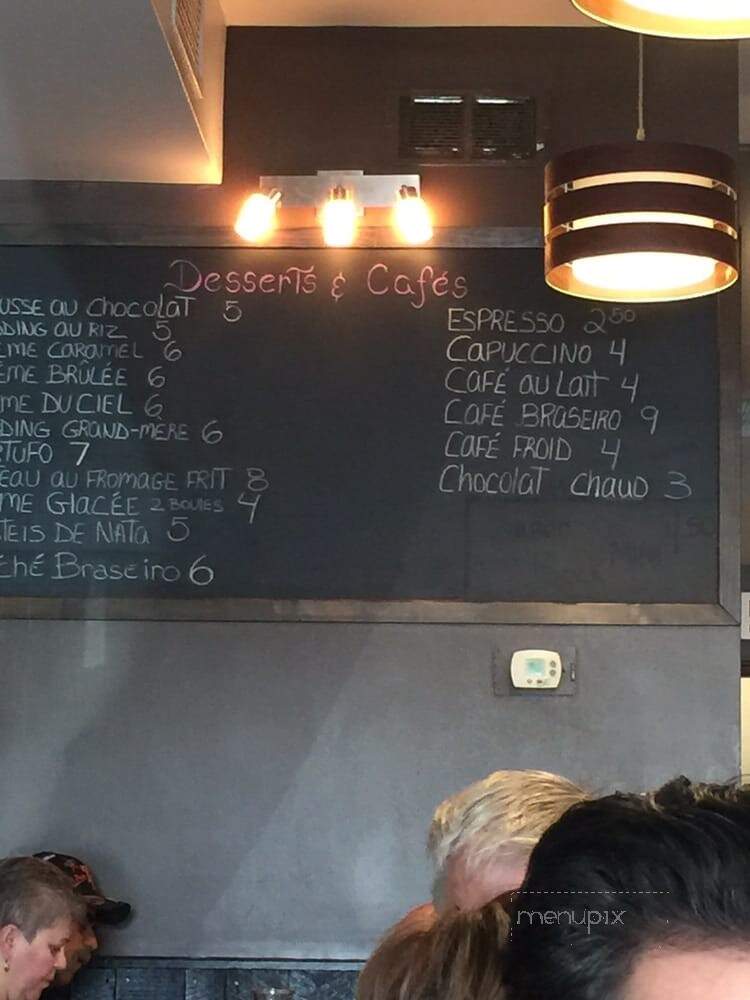 Desserts & Cafés
USSE AU CHOCOLAT 5
DDING AU RIZ 5
ÈME CARAMEL 6
ÈME BRÛLÉE 6
ME DU CIEL 6
DDING GRAND-MÈRE 6
RTUFO 7
EAU AU FROMAGE FRIT 8
ME GLACÉE 2 BOULES 4
TEIS DE NATA 5
ché Braseiro 6
ESPRESSO 2.50
CAPUCCINO 4
CAFÉ AU LAIT 4
CAFÉ BRASEIRO 9
CAFÉ FROID 4
Chocolat chaud 3
menupix